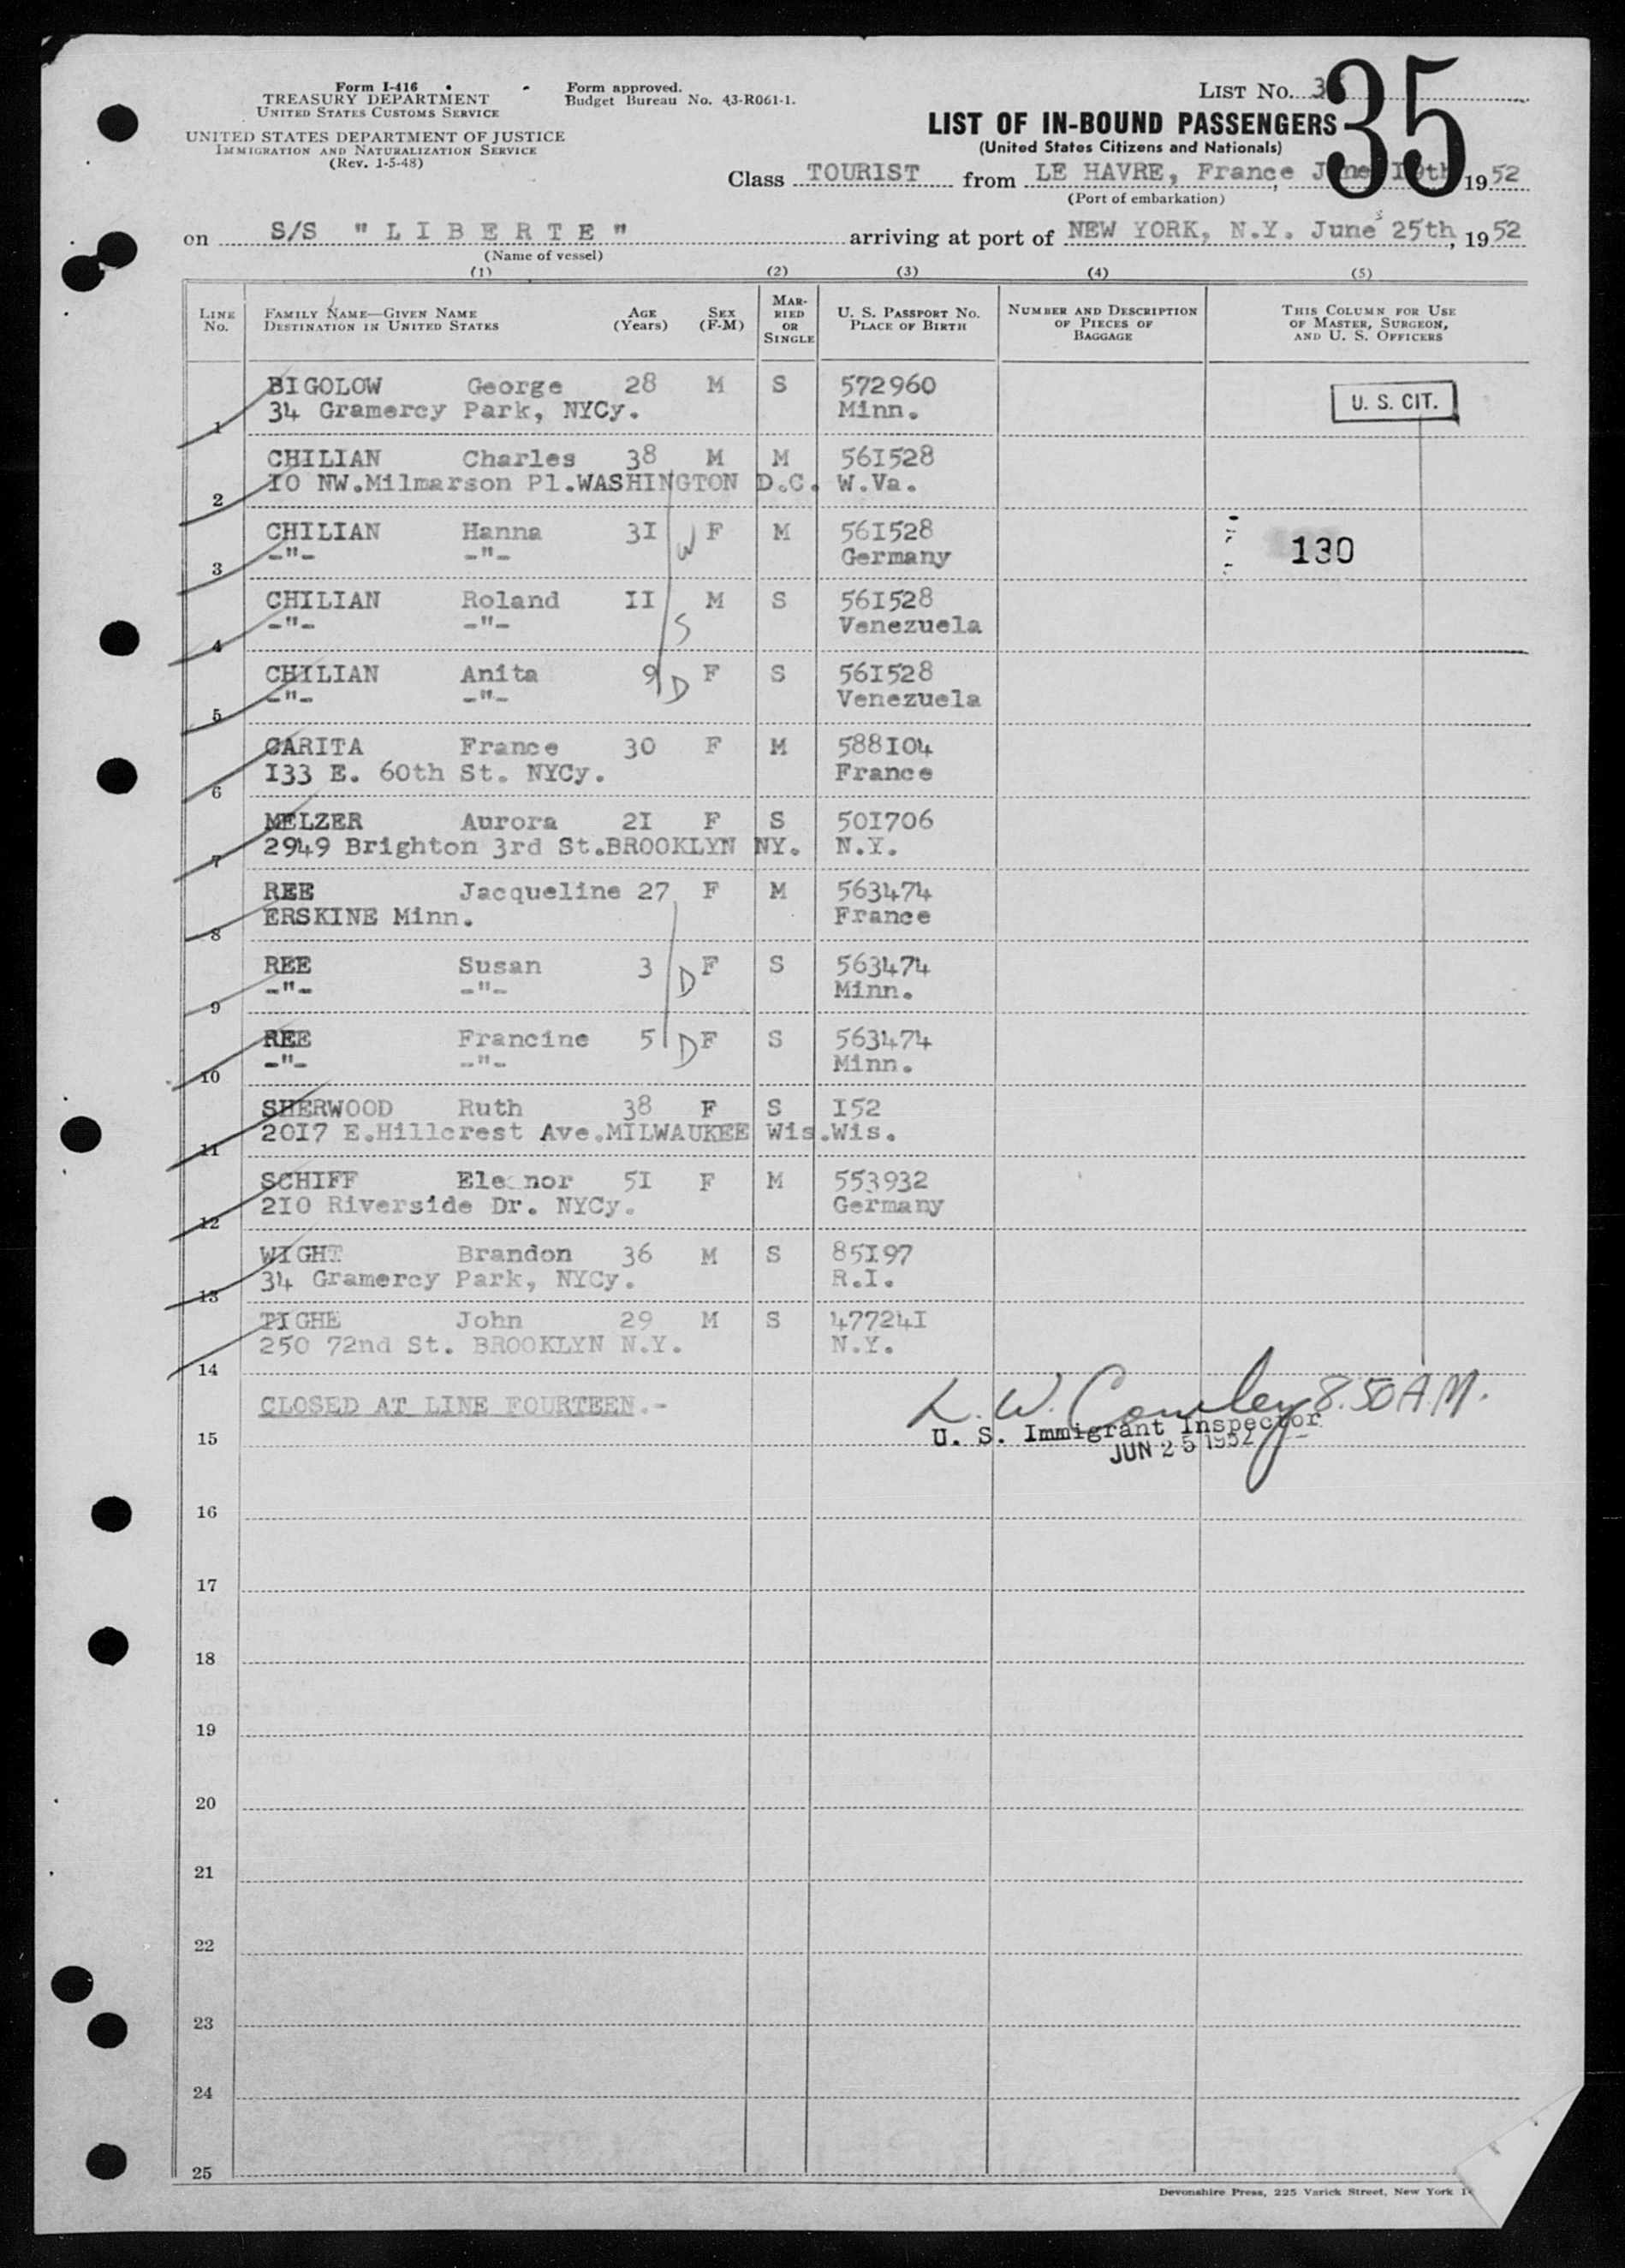 Form I-416
TREASURY DEPARTMENT
UNITED STATES CUSTOMS SERVICE
UNITED STATES DEPARTMENT OF JUSTICE
IMMIGRATION AND NATURALIZATION SERVICE
(Rev. 1-5-48)
Form approved.
Budget Bureau No. 43-R061-1.
LIST NO. 3
35
LIST OF IN-BOUND PASSENGERS
(United States Citizens and Nationals)
Class TOURIST from LE HAVRE, France, June 19th 1952
(Port of embarkation)
on S/S "LIBERTE" arriving at port of NEW YORK, N.Y. June 25th, 1952
(Name of vessel)
(1) (2) (3) (4) (5)
LINE No. FAMILY NAME—GIVEN NAME DESTINATION IN UNITED STATES AGE (Years) SEX (F-M) MARRIED OR SINGLE U. S. PASSPORT NO. PLACE OF BIRTH NUMBER AND DESCRIPTION OF PIECES OF BAGGAGE THIS COLUMN FOR USE OF MASTER, SURGEON, AND U. S. OFFICERS
BIGOLOW George 28 M S 572960 U. S. CIT.
1 34 Gramercy Park, NYCy. Minn.
CHILIAN Charles 38 M M 561528
2 10 NW.Milmarson Pl.WASHINGTON D.C. W.Va.
CHILIAN Hanna 31 W F M 561528 130
3 -"- -"- Germany
CHILIAN Roland 11 M S 561528
4 -"- -"- S Venezuela
CHILIAN Anita 9 D F S 561528
5 -"- -"- Venezuela
CARITA France 30 F M 588104
6 133 E. 60th St. NYCy. France
MELZER Aurora 21 F S 501706
7 2949 Brighton 3rd St.BROOKLYN NY. N.Y.
REE Jacqueline 27 F M 563474
8 ERSKINE Minn. France
REE Susan 3 D F S 563474
9 -"- -"- Minn.
REE Francine 5 D F S 563474
10 -"- -"- Minn.
SHERWOOD Ruth 38 F S 152
11 2017 E.Hillcrest Ave.MILWAUKEE Wis.Wis.
SCHIFF Eleanor 51 F M 553932
12 210 Riverside Dr. NYCy. Germany
WIGHT Brandon 36 M S 85197
13 34 Gramercy Park, NYCy. R.I.
TIGHE John 29 M S 477241
14 250 72nd St. BROOKLYN N.Y. N.Y.
CLOSED AT LINE FOURTEEN.-
L. W. Cowley 8.50 A.M.
15 U. S. Immigrant Inspector
JUN 25 1952
16
17
18
19
20
21
22
23
24
25
Devonshire Press, 225 Varick Street, New York